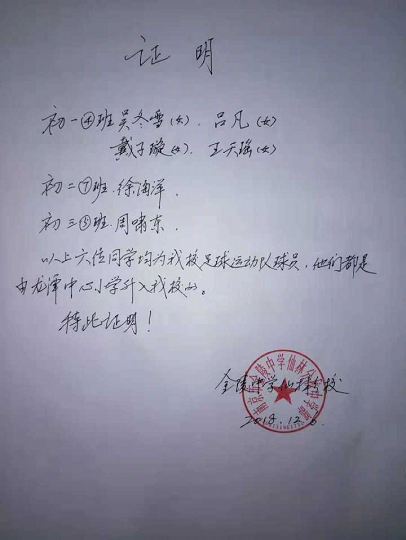 证明
初一④班吴冬雪(女)、吕凡(女)
戴子璇(女)、王天瑶(女)
初二⑦班.徐海洋.
初三⑤班.周啸东.
以上六位同学均为我校足球运动队球员,他们都是
由龙潭中心小学升入我校的。
特此证明!
金陵中学仙林分校
2018.12.6.